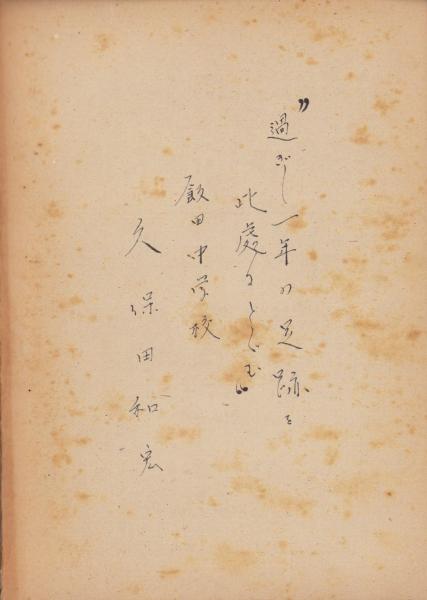 〟過ぎし一年の足跡を
此處にとゞむ〟
飯田中学校
久保田和宏